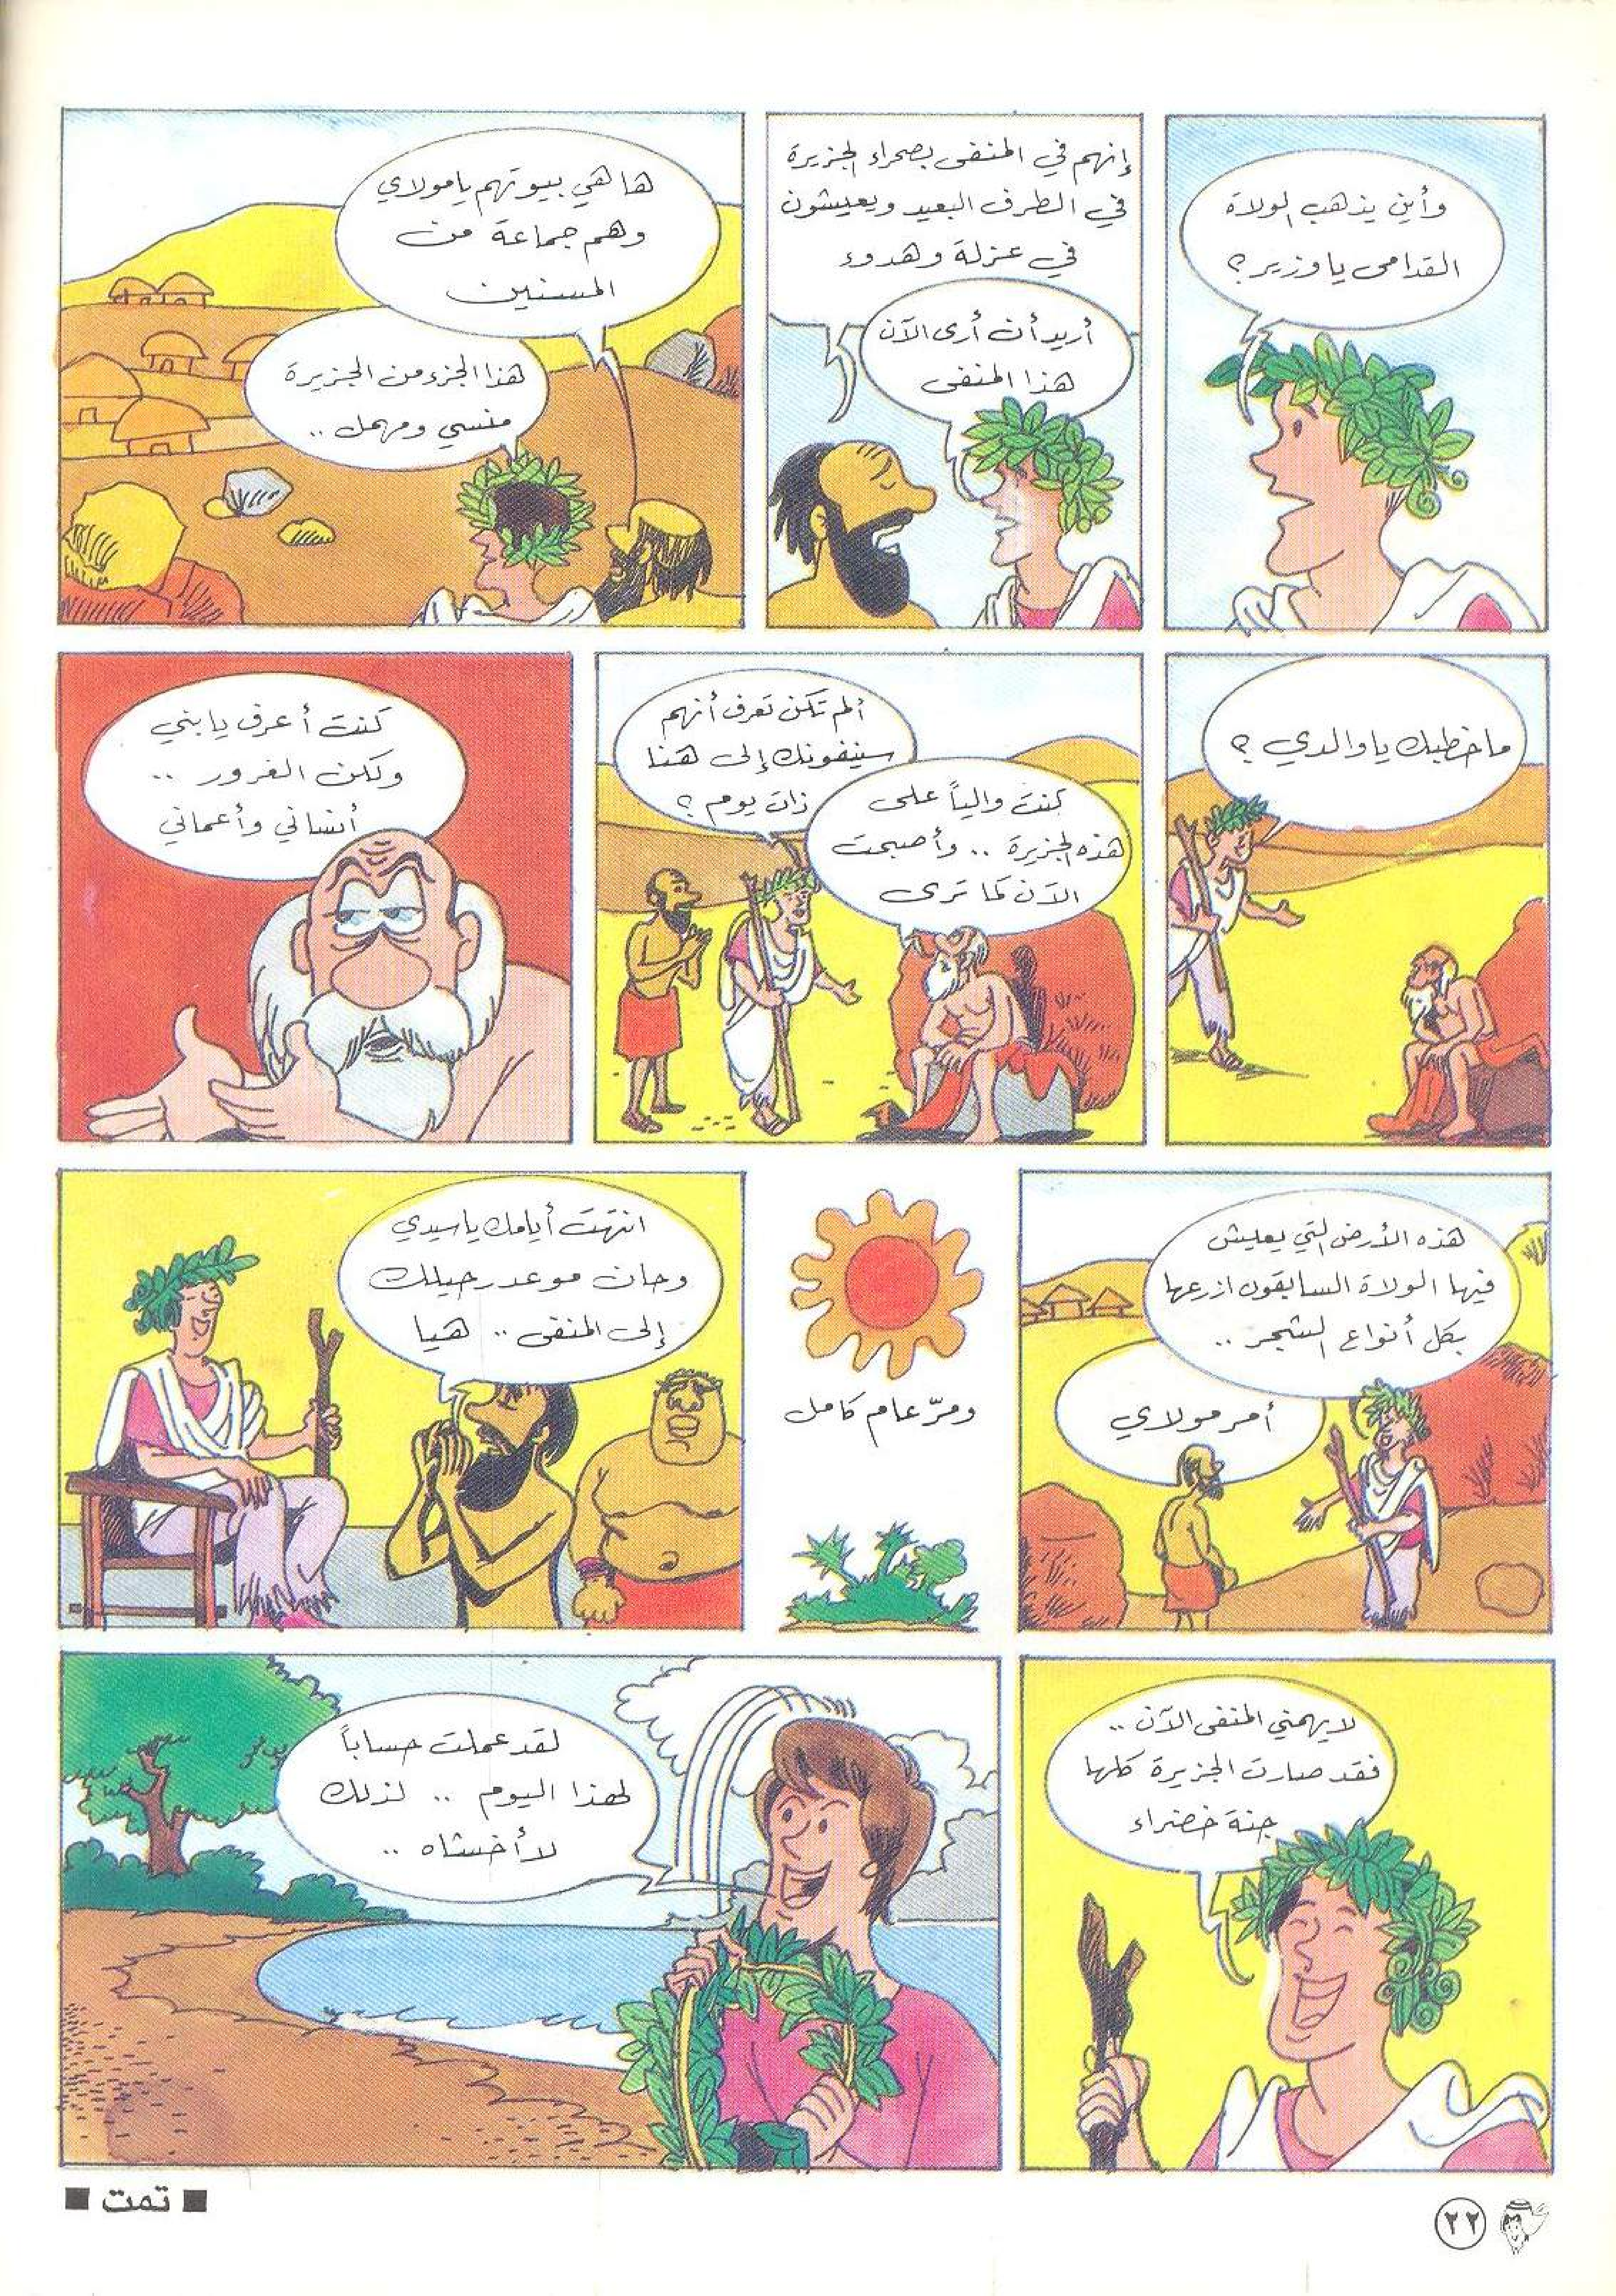 وأين يذهب الولاة
القدامى يا وزير؟
إنهم في المنفى بصحراء الجزيرة
في الطرف البعيد ويعيشون
في عزلة وهدوء
أريد أن أرى الآن
هذا المنفى
ها هي بيوتهم يا مولاي
وهم جماعة من
المسنين
هذا الجزء من الجزيرة
منسي ومهمل ..
ما خطبك يا والدي ؟
ألم تكن تعرف أنهم
سينفونك إلى هنا
ذات يوم ؟
كنت والياً على
هذه الجزيرة .. وأصبحت
الآن كما ترى
كنت أعرف يا بني
ولكن الغرور ..
أنساني وأعماني
هذه الأرض التي يعيش
فيها الولاة السابقون ازرعها
بكل أنواع الشجر ..
أمر مولاي
ومرّ عام كامل
انتهت أيامك يا سيدي
وحان موعد رحيلك
إلى المنفى .. هيا
لا يهمني المنفى الآن ..
فقد صارت الجزيرة كلها
جنة خضراء
لقد عملت حساباً
لهذا اليوم .. لذلك
لا أخشاه ..
■ تمت ■
٢٢